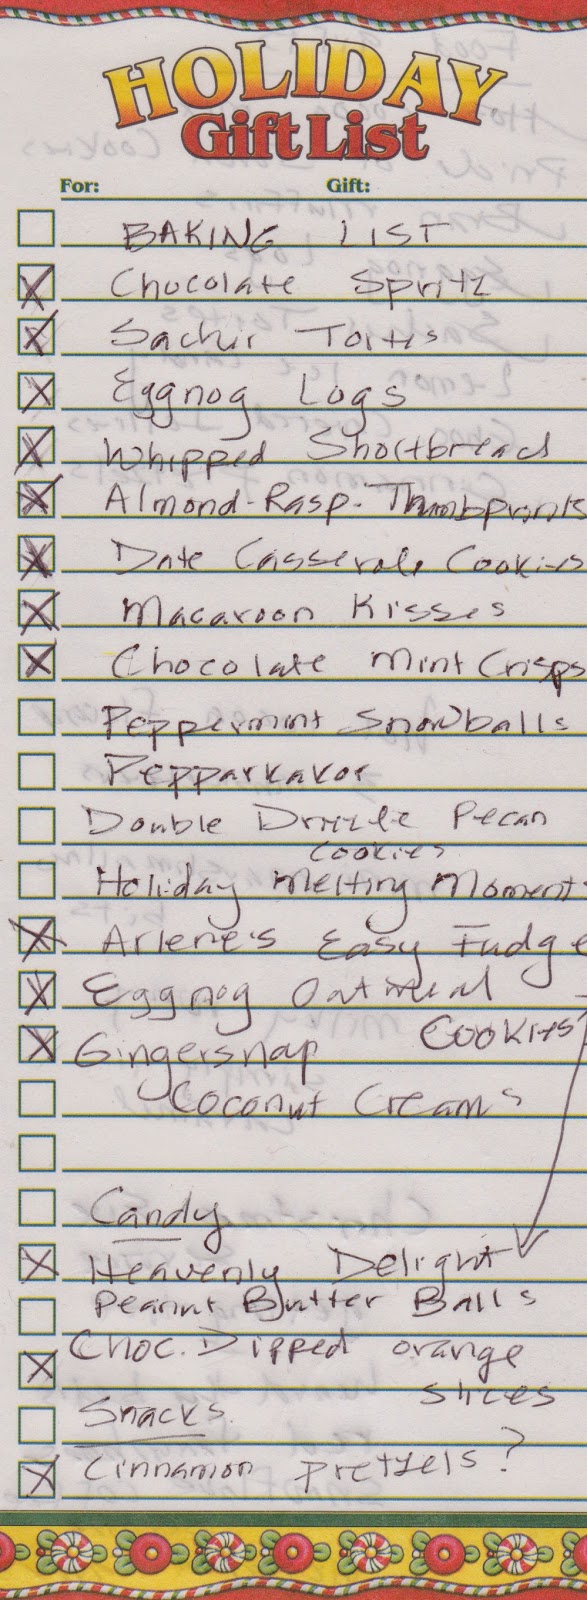 HOLIDAY
Gift List
For: Gift:
BAKING LIST
Chocolate Spritz
Sachir Tortes
Eggnog Logs
Whipped Shortbread
Almond-Rasp. Thumbprints
Date Casserole Cookies
Macaroon Kisses
Chocolate Mint Crisps
Peppermint Snowballs
Pepparkakor
Double Drizzle Pecan
Cookies
Holiday Melting Moments
Arlene's Easy Fudge
Eggnog Oatmeal
Cookies
Gingersnap
Coconut Creams
Candy
Heavenly Delight
Peanut Butter Balls
Choc. Dipped orange
slices
Snacks
Cinnamon Pretzels?